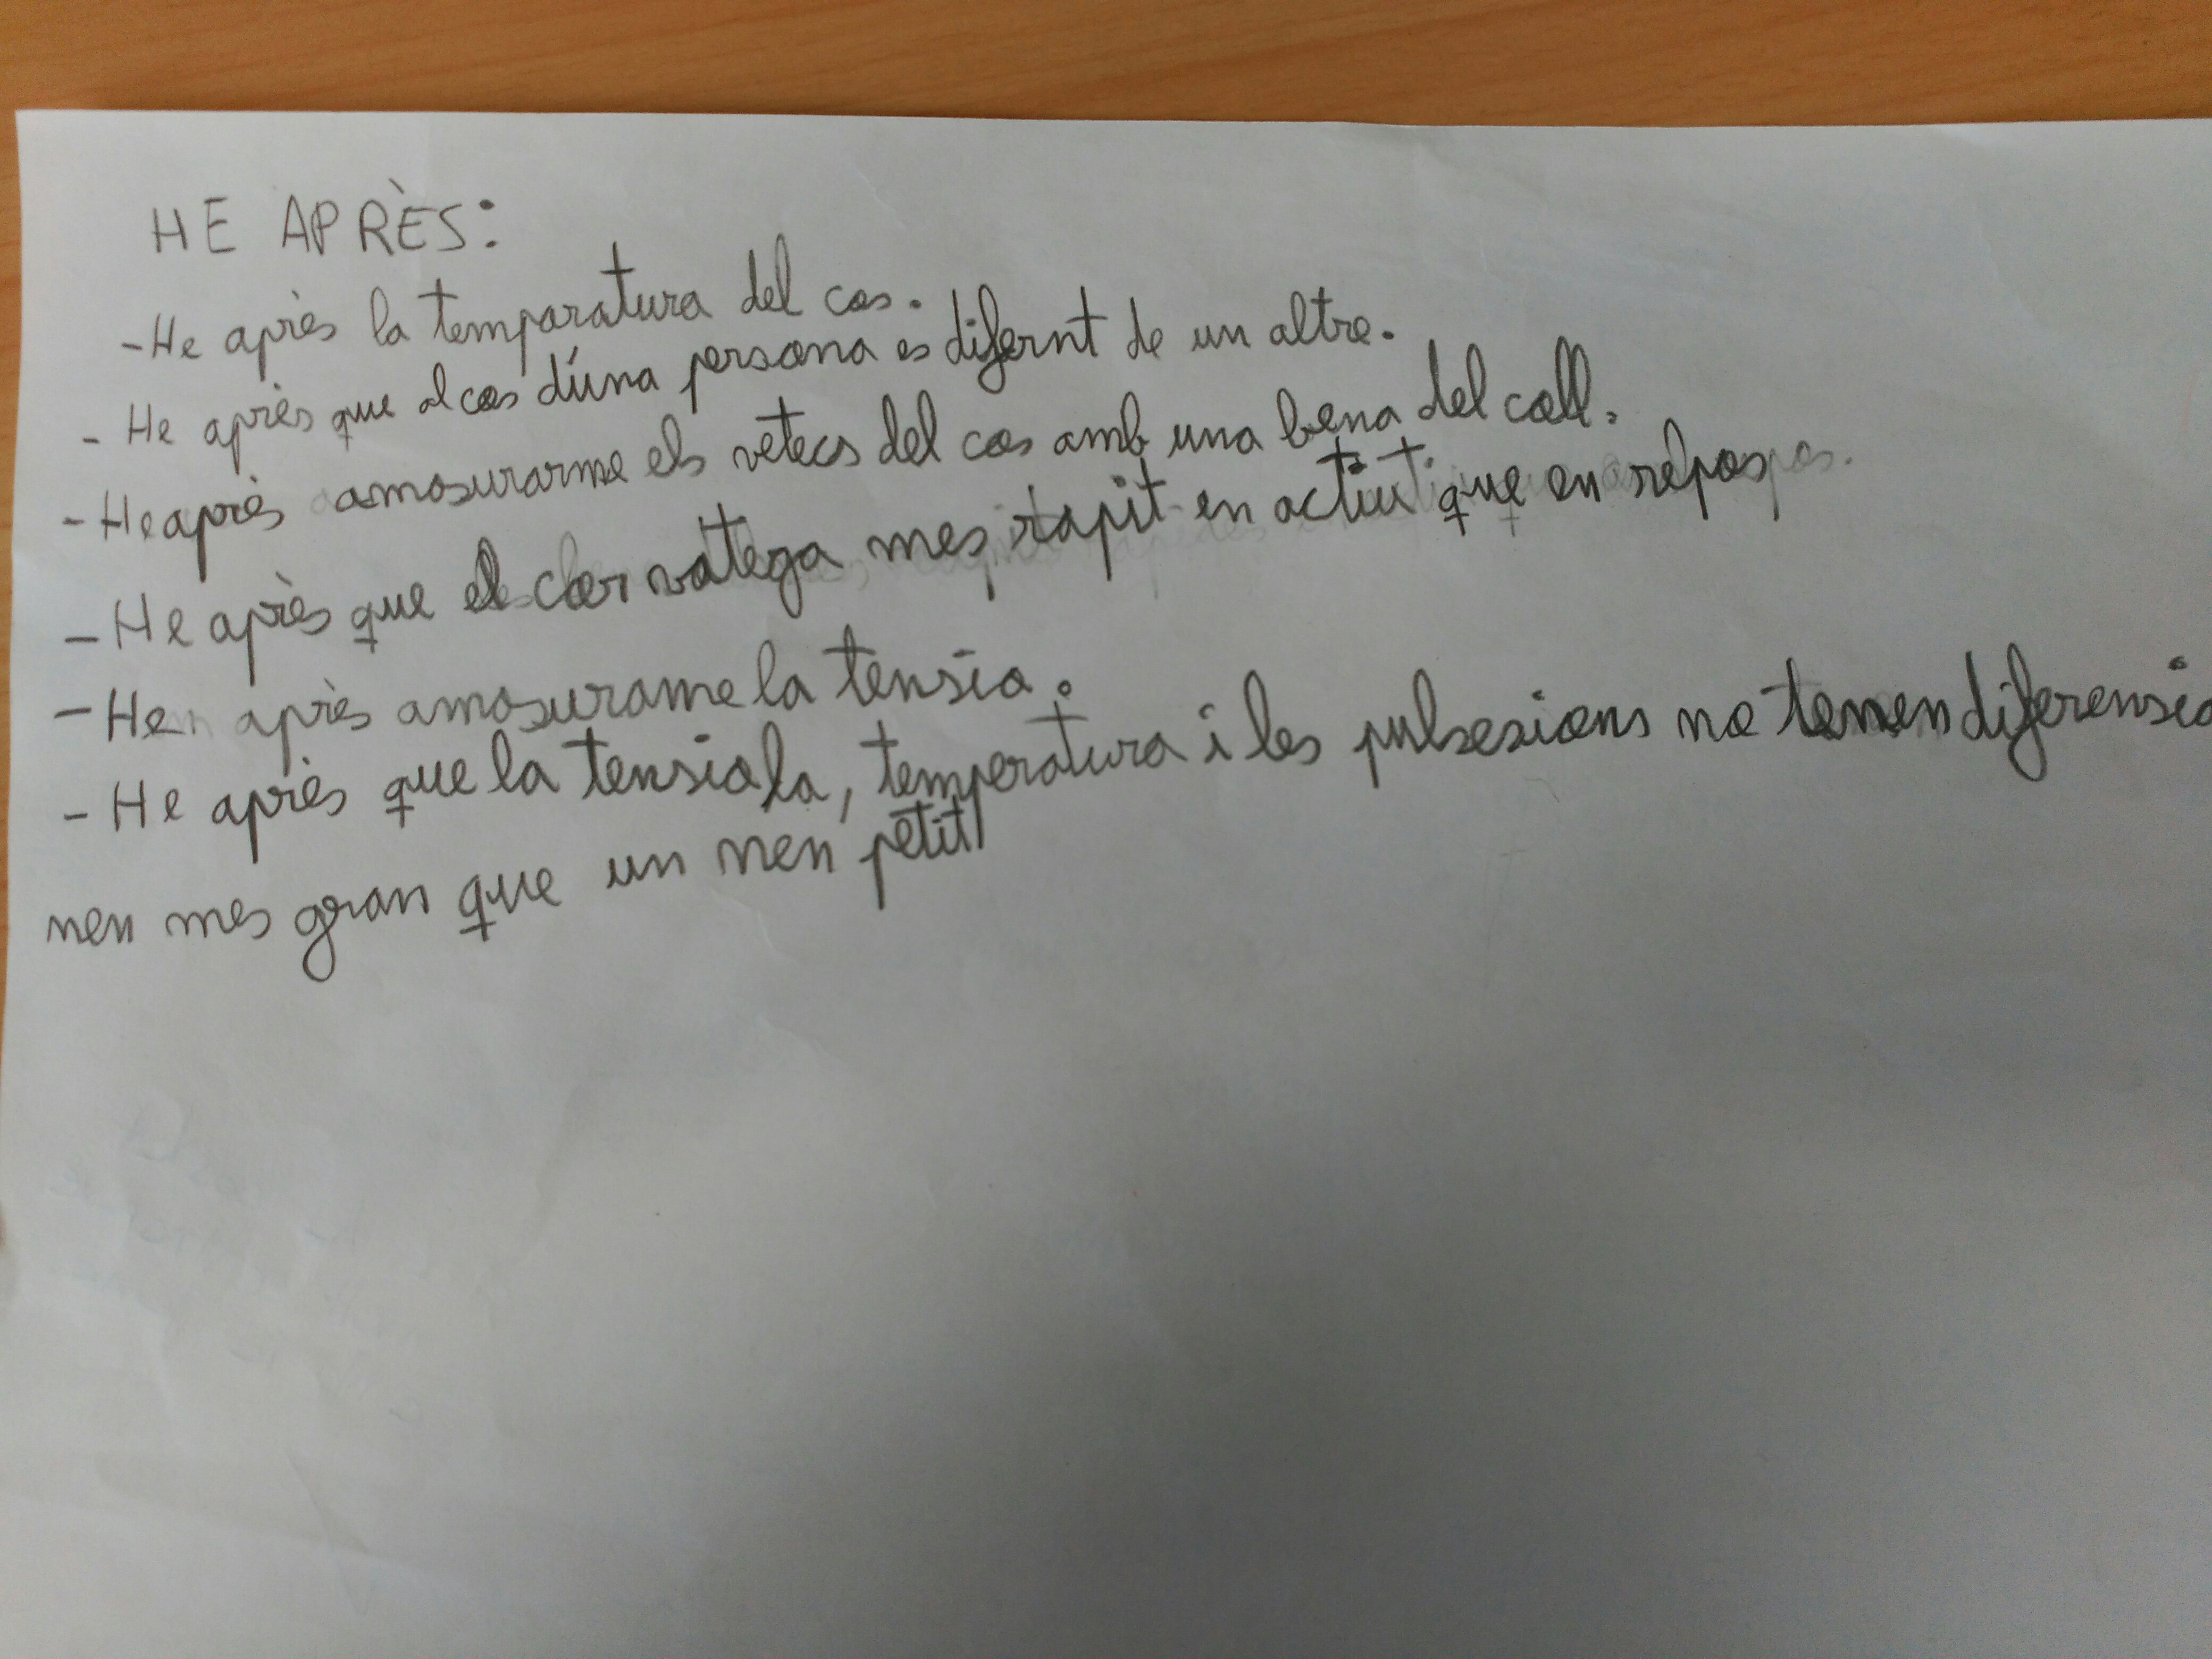 HE APRÈS:
-He après la temparatura del cos.
- He après que el cos d'una persona es difernt de un altre.
- He après amosurarme els vetecs del cos amb una bena del coll.
- He après que el cor vatega mes rapit en actiu que en repos
- He après amosurame la tensio.
- He après que la tensio la, temperatura i les pulsesions no tenen diferensia
nen mes gran que un nen petit